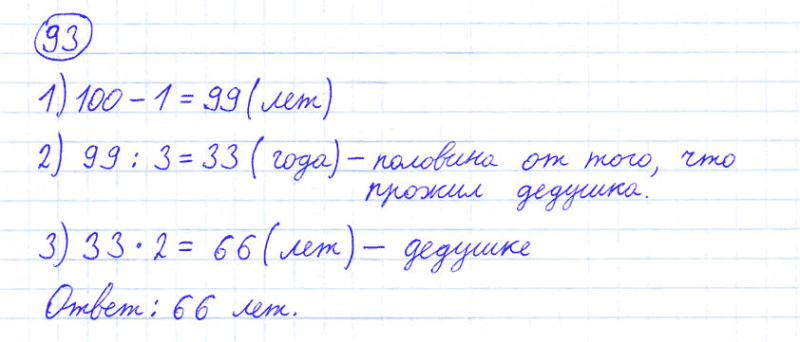 93
1) 100 - 1 = 99 (лет)
2) 99 : 3 = 33 (года) – половина от того, что
прожил дедушка.
3) 33 · 2 = 66 (лет) – дедушке
Ответ: 66 лет.